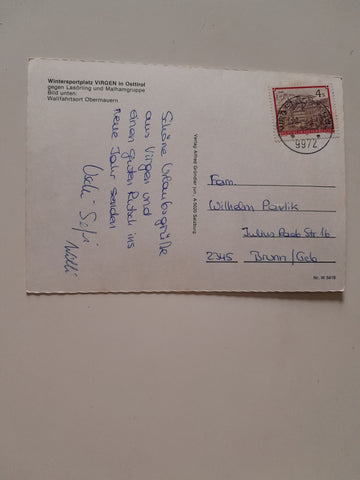 Wintersportplatz VIRGEN in Osttirol
gegen Lasörling und Malhamgruppe
Bild unten:
Wallfahrtsort Obermauern
Schöne Urlaubsgrüße
aus Virgen und
einen guten Rutsch ins
neue Jahr senden
Willi
Verlag Alfred Gründler jun. A 5020 Salzburg
4 S
9972
Fam.
Wilhelm Pavlik
Julius Raab Str. 16
2345 Brunn/Geb
Nr. W 5419